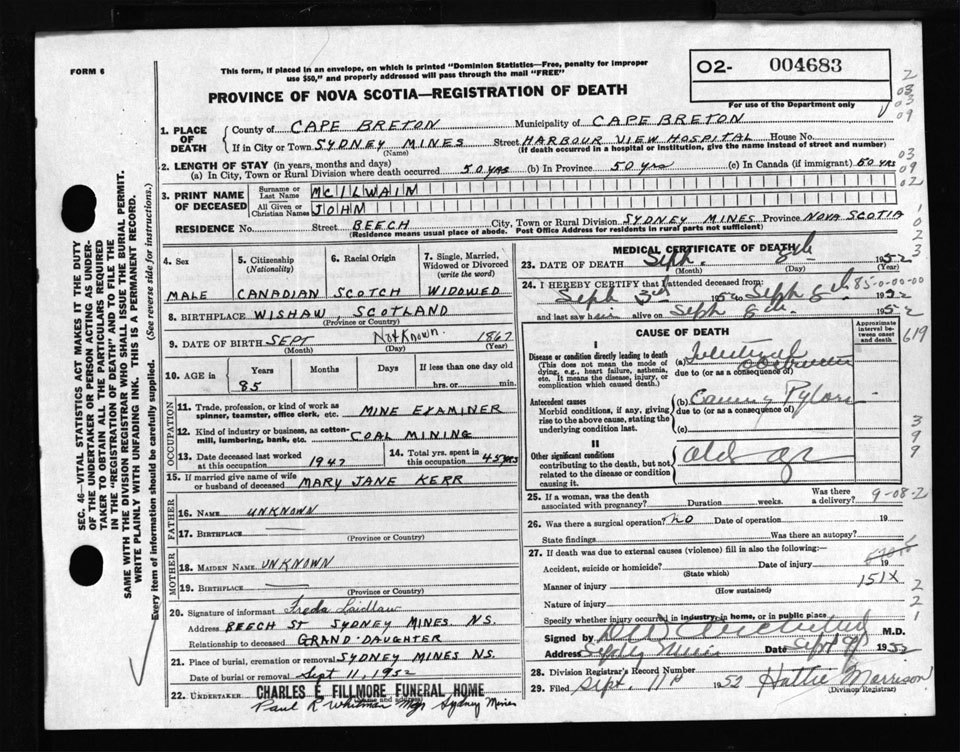 FORM 6
This form, if placed in an envelope, on which is printed "Dominion Statistics—Free, penalty for improper
use $50," and properly addressed will pass through the mail "FREE"
O2- 004683
For use of the Department only
PROVINCE OF NOVA SCOTIA—REGISTRATION OF DEATH
2
03
03
09
03
09
02
1
0
2
3
SEC. 46—VITAL STATISTICS ACT MAKES IT THE DUTY
OF THE UNDERTAKER OR PERSON ACTING AS UNDER-
TAKER TO OBTAIN ALL THE PARTICULARS REQUIRED
IN THE "REGISTRATION OF DEATH" AND TO FILE THE
SAME WITH THE DIVISION REGISTRAR WHO SHALL ISSUE THE BURIAL PERMIT.
WRITE PLAINLY WITH UNFADING INK. THIS IS A PERMANENT RECORD.
Every item of information should be carefully supplied. (See reverse side for instructions.)
1. PLACE OF DEATH
County of CAPE BRETON Municipality of CAPE BRETON
If in City or Town SYDNEY MINES Street HARBOUR VIEW HOSPITAL House No.
(Name) (If death occurred in a hospital or institution, give the name instead of street and number)
2. LENGTH OF STAY (in years, months and days)
(a) In City, Town or Rural Division where death occurred 50 YRS (b) In Province 50 yrs (c) In Canada (if immigrant) 50 YRS
3. PRINT NAME OF DECEASED
Surname or Last Name MCILWAIN
All Given or Christian Names JOHN
RESIDENCE No. Street BEECH City, Town or Rural Division SYDNEY MINES Province NOVA SCOTIA
(Residence means usual place of abode. Post Office Address for residents in rural parts not sufficient)
4. Sex
MALE
5. Citizenship (Nationality)
CANADIAN
6. Racial Origin
SCOTCH
7. Single, Married, Widowed or Divorced (write the word)
WIDOWED
8. BIRTHPLACE WISHAW, SCOTLAND
(Province or Country)
9. DATE OF BIRTH SEPT Not Known 1867
(Month) (Day) (Year)
10. AGE in Years Months Days If less than one day old
85 hrs. or min.
OCCUPATION
11. Trade, profession, or kind of work as spinner, teamster, office clerk, etc. MINE EXAMINER
12. Kind of industry or business, as cotton-mill, lumbering, bank, etc. COAL MINING
13. Date deceased last worked at this occupation 1947
14. Total yrs. spent in this occupation 45 yrs
15. If married give name of wife or husband of deceased MARY JANE KERR
FATHER
16. Name UNKNOWN
17. Birthplace
(Province or Country)
MOTHER
18. Maiden Name UNKNOWN
19. Birthplace
(Province or Country)
20. Signature of informant Freda Laidlaw
Address BEECH ST SYDNEY MINES. N.S.
Relationship to deceased GRAND-DAUGHTER
21. Place of burial, cremation or removal SYDNEY MINES NS.
Date of burial or removal Sept 11, 1952
22. Undertaker CHARLES E. FILLMORE FUNERAL HOME
Paul R Whitman Mgr Sydney Mines
MEDICAL CERTIFICATE OF DEATH
23. DATE OF DEATH Sept. 8th 1952
(Month) (Day) (Year)
24. I HEREBY CERTIFY that I attended deceased from: 85-0-00-00
Sept 3rd 1952 to Sept 8th 1952
and last saw him alive on Sept 8th 1952
CAUSE OF DEATH
Approximate interval between onset and death
619
I
Disease or condition directly leading to death
(This does not mean the mode of dying, e.g., heart failure, asthenia, etc. It means the disease, injury, or complication which caused death.)
(a)
due to (or as a consequence of)
Antecedent causes
Morbid conditions, if any, giving rise to the above cause, stating the underlying condition last.
(b)
due to (or as a consequence of)
(c)
II
Other significant conditions
contributing to the death, but not related to the disease or condition causing it.
old age
3
9
9
25. If a woman, was the death associated with pregnancy? Duration weeks. Was there a delivery?
9-08-2
26. Was there a surgical operation? no Date of operation 19
State findings Was there an autopsy?
27. If death was due to external causes (violence) fill in also the following:—
Accident, suicide or homicide? Date of injury 19
(State which)
Manner of injury 151X
(How sustained)
Nature of injury
2
2
1
Specify whether injury occurred in industry, in home, or in public place
Signed by M.D.
Address Sydney Mines Date Sept 9 1952
28. Division Registrar's Record Number
29. Filed Sept. 11 1952 Hattie Morrison
(Division Registrar)